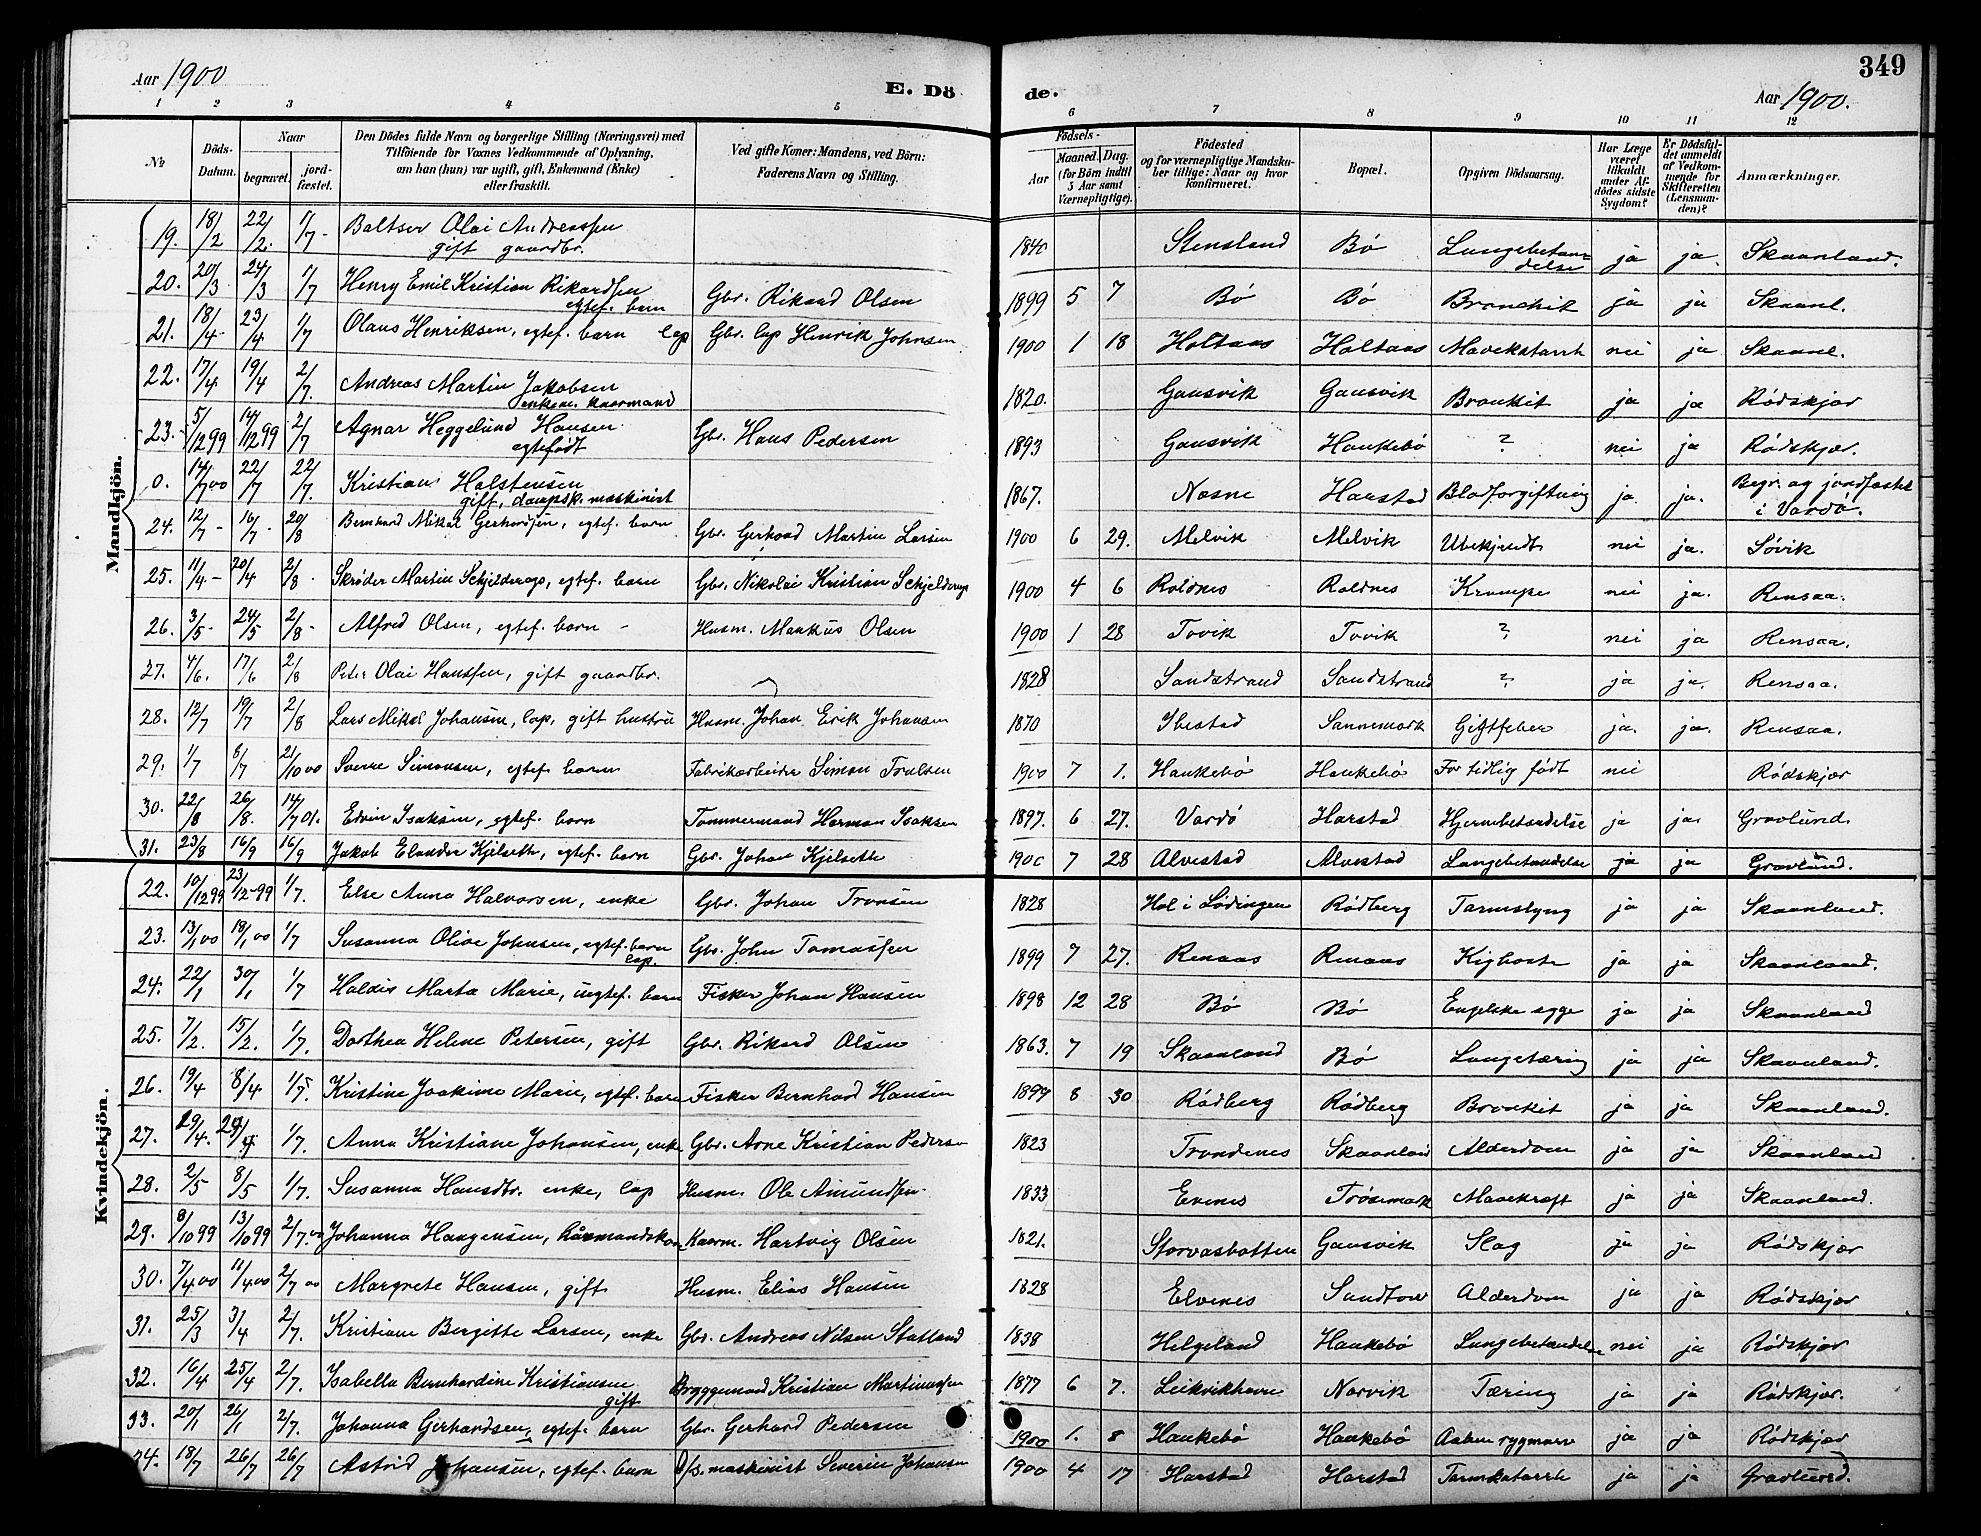 349
Aar 1900
E. Döde.
Aar 1900.
1 2 3 4 5 6 7 8 9 10 11 12
No
Döds-Datum.
Naar
begravet.
jordfæstet.
Den Dödes fulde Navn og borgerlige Stilling (Næringsvei) med
Tilföiende for Voxnes Vedkommende af Oplysning,
om han (hun) var ugift, gift, Enkemand (Enke)
eller fraskilt.
Ved gifte Koner: Mandens, ved Börn:
Faderens Navn og Stilling.
Födsels-
Aar
Maaned.
Dag.
(for Börn indtil
5 Aar samt
Værnepligtige).
Födested
og for værnepligtige Mandskaber tillige: Naar og hvor
konfirmeret.
Bopæl.
Opgiven Dödsaarsag.
Har Læge
været
tilkaldt
under Afdödes sidste
Sygdom?
Er Dödsfaldet anmeldt
af Vedkommende for
Skifteretten
(Lensmanden)?
Anmærkninger.
Mandkjön.
19. 18/2 22/2. 1/7 - Baltser Olai Andreassen gift gaardbr. 1840 Stensland Bö Lungebetændelse ja ja. Skaanland.
20. 20/3 24/3 1/7 Henry Emil Kristian Rikardsen egtef. barn Gbr. Rikard Olsen 1899 5 7 Bö Bö Bronchit ja ja Skaanl.
21. 18/4 - 23/4 1/7 Olaus Henriksen, egtef. barn lap Gbr. lap Henrik Johnsen 1900 1 18 Holtaas Holtaas Mavekatarrh nei ja Skaanl.
22. 17/4 19/4 2/7. Andreas Martin Jakobsen enkem. kaarmand 1820. Gausvik Gausvik Bronkit ja ja Rödskjær
23. 5/12 99 14/12 99 2/7 Agnar Heggelund Hansen egtefödt Gbr. Hans Pedersen 1893 Gausvik Haukebö ? nei ja Rödskjær.
0. 14/7 00 22/7 22/7. Kristian Holstensen gift, dampsk. maskinist 1867. Nesne Harstad Blodforgiftning ja. ja. Begr. og jordfæstet i Vardö.
24. 12/7 - 16/7 - 20/8 Bernhard Mikal Gerhardsen, egtef. barn Gbr. Gerhard Martin Larsen 1900 6 29. Melvik Melvik Ubekjendt nei ja. Sövik
25. 11/4 - 20/4 2/8 - Skröder Martin Schjelderup, egtef. barn Gbr. Nikolai Kristian Schjelderup 1900 4 6 Roldnes Roldnes Krampe nei ja. Rensaa.
26. 3/5 - 24/5 2/8 - Alfred Olsen, egtef. barn - Husm. Markus Olsen 1900 1 28 Tovik Tovik ? nei ja Rensaa.
27. 4/6. 17/6 2/8 Peter Olai Hanssen, gift gaardbr. 1828 Sandstrand Sandstrand ? ja ja. Rensaa.
28. 12/7 19/7 2/8 Lars Mikal Johansen, lap, gift hustru Husm. Johan Erik Johansen 1870 Ibestad Sannemark Gigtfeber ja. ja. Rensaa.
29. 1/7 8/7 21/10 00 Sverre Simonsen, egtef. barn Fabrikarbeider Simon Trulsen 1900 7 1. Haukebö Haukebö For tidlig födt nei Rödskjær
30. 22/8 26/8. 14/7 01. Edvin Isaksen, egtef. barn Tömmermand Herman Isaksen 1897. 6 27. Vardö Harstad Hjernebetændelse ja ja. Gravlund.
31. 23/8 16/9 16/9 Jakob Elander Kjelseth, egtef. barn Gbr. Johan Kjelseth 1900 7 28 Alvestad Alvestad Lungebetændelse ja ja Gravlund.
Kvindekjön.
22. 10/12 99 23/12 99 1/7. Else Anna Halvorsen, enke Gbr. Johan Tronsen 1828 Hol i Lödingen Rödberg Tarmslyng ja ja Skaanland.
23. 13/1 00 18/1 00 1/7 Susanna Olive Johnsen, egtef. barn lap. Gbr. John Tomassen 1899 7 27. Renaas Renaas Kighoste ja ja Skaanland.
24. 22/1 30/1 1/7 Haldis Marta Marie, uegtef. barn Fisker Johan Hansen 1898 12 28 Bö Bö Engelske syge ja ja Skaanland
25. 7/2. 15/2. 1/7. Dorthea Helene Petersen, gift Gbr. Rikard Olsen 1863. 7 19 Skaanland Bö Lungetæring ja ja Skaanland.
26. 19/4 8/4 1/7. Kristine Joakime Marie, egtef. barn Fisker Bernhard Hansen 1899 8 30 Rödberg Rödberg Bronkit ja ja Skaanland.
27. 29/4. 29/4 1/7. Anna Kristiane Johansen, enke Gbr. Arne Kristian Pedersen 1823 Trondenes Skaanland Alderdom ja ja Skaanland
28. 2/5 8/5 1/7. Susanna Hansdtr. enke, lap Husm. Ole Amundsen 1833 Evenes Trösemark Mavekræft ja ja Skaanland.
29. 8/10 99 13/10 99 2/7. 00 Johanna Haagensen, kårmandskone Kaarm. Hartvig Olsen 1821. Storvasbotten Gausvik Slag ja ja Rödskjær
30. 7/4 00 11/4 00 2/7 00 Margrete Hansen, gift Husm. Elias Hansen 1828 Elvenes Sandtorv Alderdom ja ja Rödskjær
31. 25/3 3/4 2/7. Kristiane Bergitte Larsen, enke Gbr. Andreas Nilsen Stotland 1838 Helgeland Haukebö Lungebetændelse nei ja Rödskjær
32. 16/4 25/4 2/7. Isabella Bernhardine Kristiansen gift Bryggemand Kristian Martinussen 1877 6 7. Leikvikhavn Narvik Tæring ja ja Rödskjær.
33. 20/1 26/1 2/7. Johanna Gerhardsen, egtef. barn Gbr. Gerhard Pedersen 1900 1. 8 Haukebö Haukebö Aaben rygmarv ja ja Rödskjær
34. 18/7 26/7 26/7 Astrid Johansen, egtef. barn D/s. maskinist Severin Johansen 1900 4 17 Harstad Harstad Tarmkatarrh ja ja Gravlund.